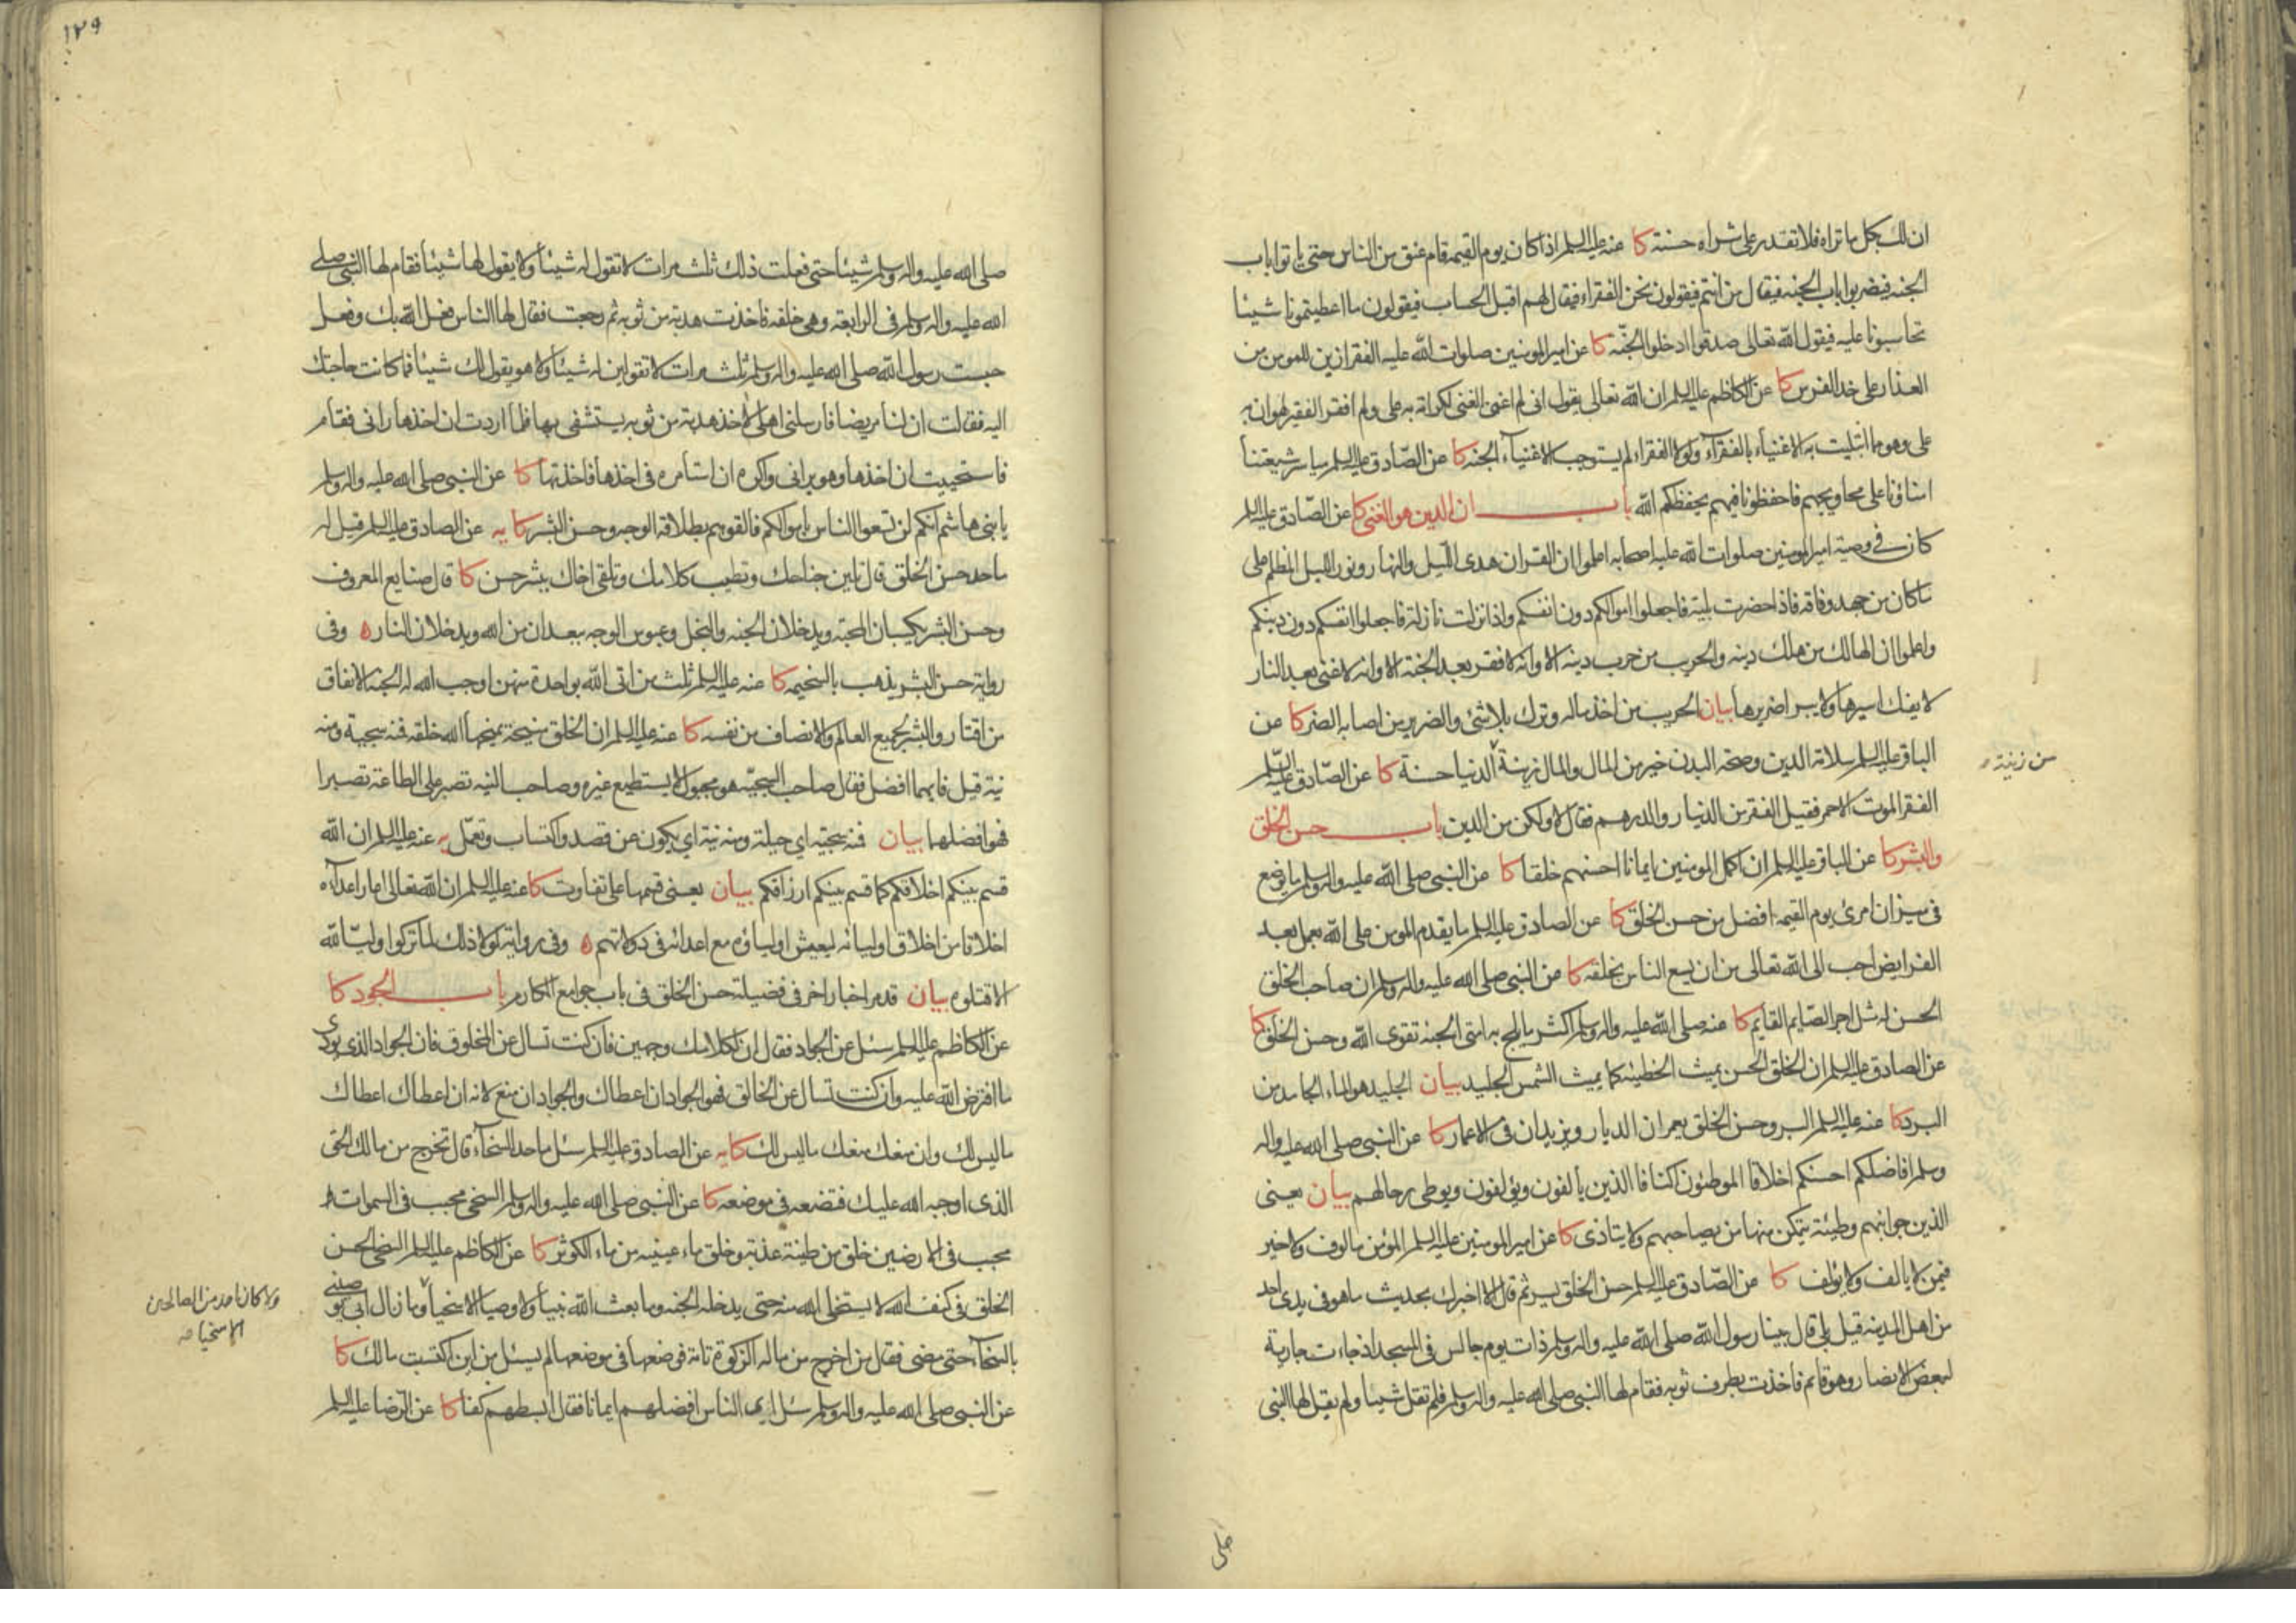 ان لك بكل ما تراه فلا تقدر على شراه حسنة كا عنه عليه السلم اذا كان يوم القيمة قام عنق من الناس حتى ياتوا باب
الجنه فيضربوا باب الجنه فيقال من انتم فيقولون نحن الفقراء فيقال لهم اقبل الحساب فيقولون ما اعطيتمونا شيئا
تحاسبونا عليه فيقول الله تعالى صدقوا ادخلوا الجنّه كا عن امير المومنين صلوات الله عليه الفقر ازين للمومن من
العذار على خد الفرس كا عن الكاظم عليه السلم ان الله تعالى يقول انى لم اغن الغنى لكرامة به على ولم افقر الفقير لهوان به
على وهو مما ابتليت به الاغنياء بالفقرآء ولولا الفقراء لم يستوجب الاغنيآء الجنه كا عن الصّادق عليه السلم مياسر شيعتنا
امناؤنا على محاويجهم فاحفظونا فيهم يحفظكم الله باب ان الدين هو الغنى كا عن الصّادق عليه السلم
كان فى وصية امير المومنين صلوات الله عليه اصحابه اعلموا ان القران هدى الليل والنهار ونور الليل المظلم على
ما كان من جهد وفاقه فاذا حضرت بلية فاجعلوا اموالكم دون انفسكم واذا نزلت نازلة فاجعلوا انفسكم دون دينكم
واعلموا ان الهالك من هلك دينه والحريب من حرب دينه الا وانه لا فقر بعد الجنة الا وانه لا غنى بعد النار
لا يفك اسيرها ولا يبرا ضريرها بيان الحريب من اخذ ماله وترك بلا شئ والضرير من اصابه الضر كا عن
الباقر عليه السلم سلامة الدين وصحة البدن خير من المال والمال زينة الدنيا حسنة كا عن الصّادق عليه السّلم
من زينة
الفقر الموت الاحمر فقيل الفقر من الدنيار والدرهم فقال لا ولكن من الدين باب حسن الخلق
والبشر كا عن الباقر عليه السلم ان اكمل المومنين ايمانا احسنهم خلقا كا عن النبى صلى الله عليه واله وسلم ما يوضع
فى ميزان امرئ يوم القيمة افضل من حسن الخلق كا عن الصادق عليه السلم ما يقدم المومن على الله بعمل بعد
الفرايض احب الى الله تعالى من ان يسع الناس بخلقه كا عن النبى صلى الله عليه واله وسلم ان صاحب الخلق
الحسن له مثل اجر الصّايم القايم كا عنه صلى الله عليه واله وسلم اكثر ما يلج به امتى الجنة تقوى الله وحسن الخلق كا
عن الصادق عليه السلم ان الخلق الحسن يميث الخطيئه كما يميث الشمس الجليد بيان الجليد هو الماء الجامد من
البرد كا عنه عليه السلم البر وحسن الخلق يعمران الديار ويزيدان فى الاعمار كا عن النبى صلى الله عليه واله
وسلم افاضلكم احسنكم اخلاقا الموطئون اكنافا الذين يألفون ويؤلفون ويوطى رحالهم بيان يعنى
الذين جوانبهم وطيئة يتمكن منها من يصاحبهم ولا يتاذى كا عن امير المومنين عليه السلم المؤمن مالوف ولا خير
فيمن لا يالف ولا يؤلف كا عن الصّادق عليه السلم حسن الخلق يسر ثم قال الا اخبرك بحديث ما هو فى يدى احد
من اهل المدينه قيل بلى قال بينا رسول الله صلى الله عليه واله وسلم ذات يوم جالس فى المسجد اذ جاءت جارية
لبعض الانصار وهو قايم فاخذت بطرف ثوبه فقام لها النبى صلى الله عليه واله وسلم فلم تقل شيئا ولم يقل لها النبى
صلى
١٢٩
صلى الله عليه واله وسلم شيئا حتى فعلت ذلك ثلث مرات لا تقول له شيئا ولا يقول لها شيئا فقام لها النبى صلى
الله عليه واله وسلم فى الرابعة وهى خلفه فاخذت هدبة من ثوبه ثم رجعت فقال لها الناس فعل الله بك وفعل
حبست رسول الله صلى الله عليه واله وسلم ثلث مرات لا تقولين له شيئا ولا هو يقول لك شيئا فما كانت حاجتك
اليه فقالت ان لنا مريضا فارسلنى اهلى لاخذ هدبة من ثوبه يستشفى بها فلما اردت ان اخذها رانى فقام
فاستحييت ان اخذها وهو يرانى واكره ان استأمره فى اخذها فاخذتها كا عن النبى صلى الله عليه واله وسلم
يا بنى هاشم انكم لن تسعوا الناس باموالكم فالقوهم بطلاقة الوجه وحسن البشر كا يه عن الصادق عليه السلم قيل له
ما حد حسن الخلق قال تلين جناحك وتطيب كلامك وتلقى اخاك ببشر حسن كا قال صنايع المعروف
وحسن البشر يكسبان المحبة ويدخلان الجنه والبخل وعبوس الوجه يبعدان من الله ويدخلان النار ه وفى
رواية حسن البشر يذهب بالسخيمه كا عنه عليه السلم ثلث من اتى الله بواحدة منهن اوجب الله له الجنة الانفاق
من اقتار والبشر لجميع العالم والانصاف من نفسه كا عنه عليه السلم ان الخلق منيحة يمنحها الله خلقه فمنه سجية ومنه
نية قيل فايهما افضل فقال صاحب السجيّة هو مجبول لا يستطيع غيره وصاحب النيه تصبر على الطاعة تصبرا
فهو افضلهما بيان فمنه سجية اى جبلة ومنه نية اى يكون عن قصد واكتساب وتعمّل يه عنه عليه السلم ان الله
قسم بينكم اخلاقكم كما قسم بينكم ارزاقكم بيان يعنى قسمها على تفاوت كا عنه عليه السلم ان الله تعالى اعار اعدآءه
اخلاقا من اخلاق اوليائه ليعيش اولياؤه مع اعدائه فى دولاتهم ه وفى رواية لولا ذلك لما تركوا وليّا لله
الا قتلوه بيان قد مر اخبار اخر فى فضيلة حسن الخلق فى باب جوامع المكارم باب الجود كا
عن الكاظم عليه السلم سئل عن الجواد فقال ان لكلامك وجهين فان كنت تسال عن المخلوق فان الجواد الذى يودى
ما افترض الله عليه وان كنت تسال عن الخالق فهو الجواد ان اعطاك والجواد ان منع لانه ان اعطاك اعطاك
ما ليس لك وان منعك منعك ما ليس لك كا يه عن الصادق عليه السلم سئل ما حد السخآء قال تخرج من مالك الحق
الذى اوجبه الله عليك فتضعه فى موضعه كا عن النبى صلى الله عليه واله وسلم السخى محبب فى السموات
محبب فى الارضين خلق من طينة عذبة وخلق ماء عينيه من ماء الكوثر كا عن الكاظم عليه السلم السخى الحسن
الخلق فى كنف الله لا يستخلى الله منه حتى يدخله الجنه وما بعث الله نبيا ولا وصيا الا سخيا وما زال ابى يوصينى
ولا كان احد من الصالحين
الا سخيا
بالسخآء حتى مضى فقال من اخرج من ماله الزكوة تامة فوضعها فى موضعها لم يسئل من اين اكتسبت مالك كا
عن النبى صلى الله عليه واله وسلم سئل اى الناس افضلهم ايمانا فقال ابسطهم كفا كا عن الرّضا عليه السلم